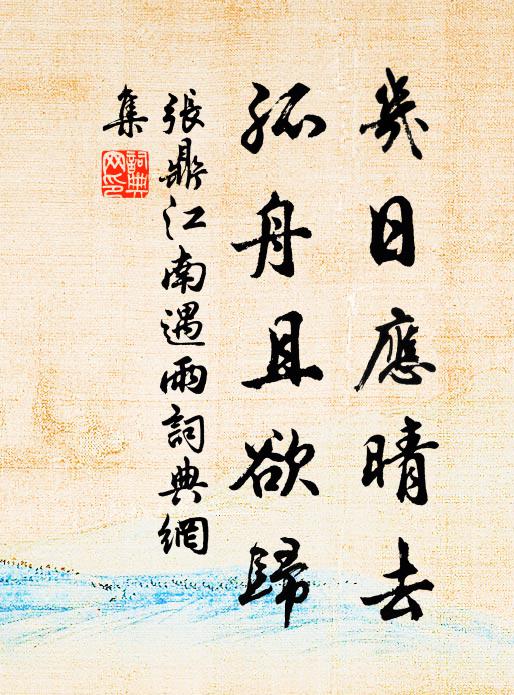 幾日應晴去
孤舟且欲歸
張鼎江南遇雨詞典網
集
詞典
网印